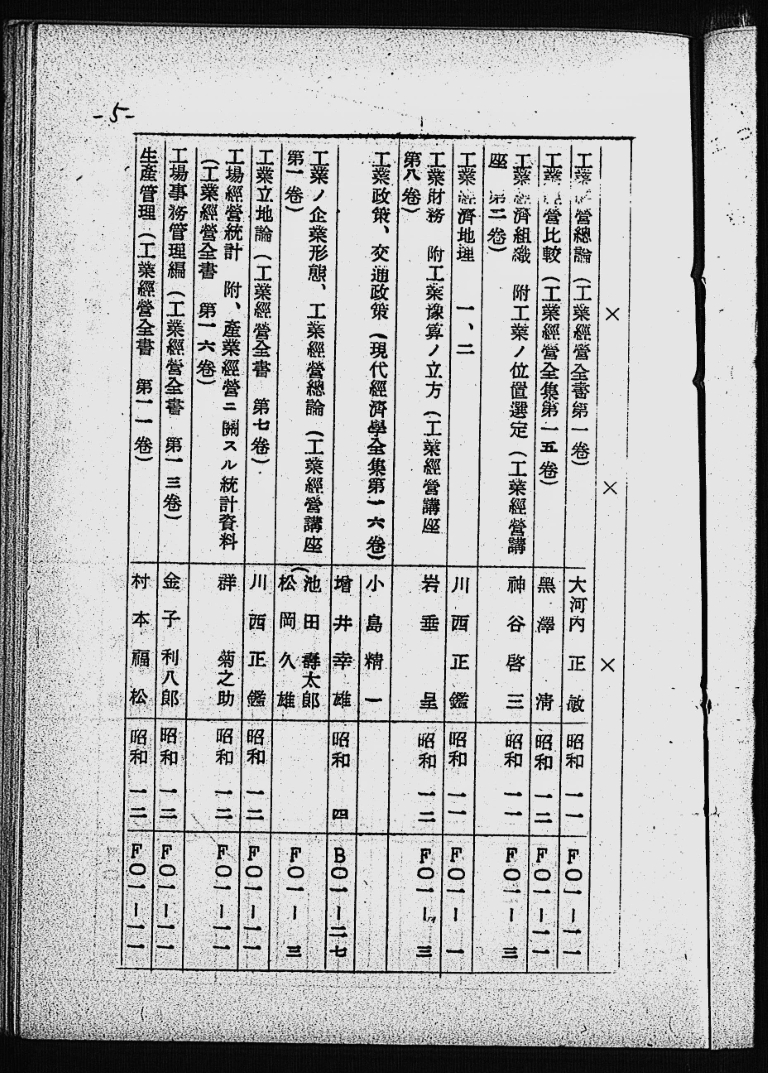 -5-
× × ×
工業經營總論（工業經營全書第一卷） 大河內正敏 昭和一一 F〇一―一一
工業經營比較（工業經營全集第一五卷） 黑澤淸 昭和一二 F〇一―一一
工業經濟組織 附工業ノ位置選定（工業經營講
座 第二卷） 神谷啓三 昭和一一 F〇一―三
工業經濟地理 一、二 川西正鑑 昭和一一 F〇一―一
工業財務 附工業豫算ノ立方（工業經營講座
第八卷） 岩垂 昭和一二 F〇一―三
工業政策、交通政策（現代經濟學全集第一六卷） 小島精一
增井幸雄 昭和 四 B〇一―二七
工業ノ企業形態、工業經營總論（工業經營講座
第一卷） （池田壽太郎
松岡久雄 F〇一―三
工業立地論（工業經營全書 第七卷） 川西正鑑 昭和一二 F〇一―一一
工場經營統計 附、產業經營ニ關スル統計資料
（工業經營全書 第一六卷） 群菊之助 昭和一二 F〇一―一一
工場事務管理編（工業經營全書 第一三卷） 金子利八郎 昭和一二 F〇一―一一
生產管理（工業經營全書 第一一卷） 村本福松 昭和一二 F〇一―一一